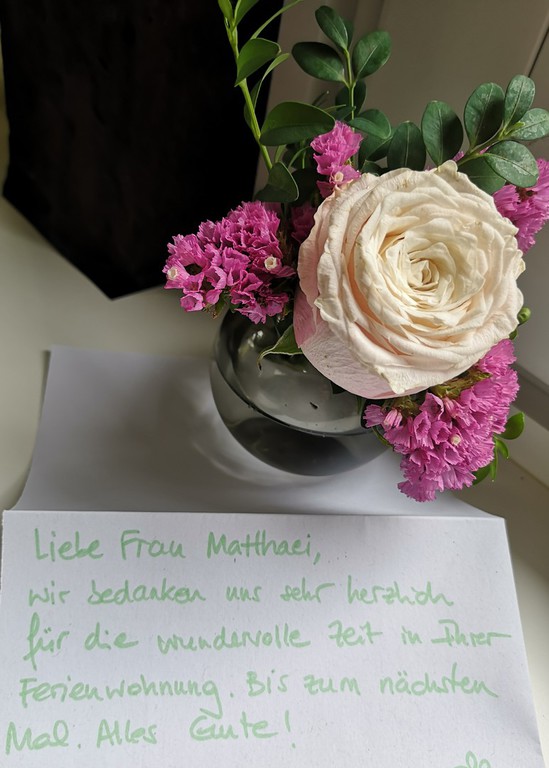 Liebe Frau Matthaei,
wir bedanken uns sehr herzlich
für die wundervolle Zeit in Ihrer
Ferienwohnung. Bis zum nächsten
Mal. Alles Gute!